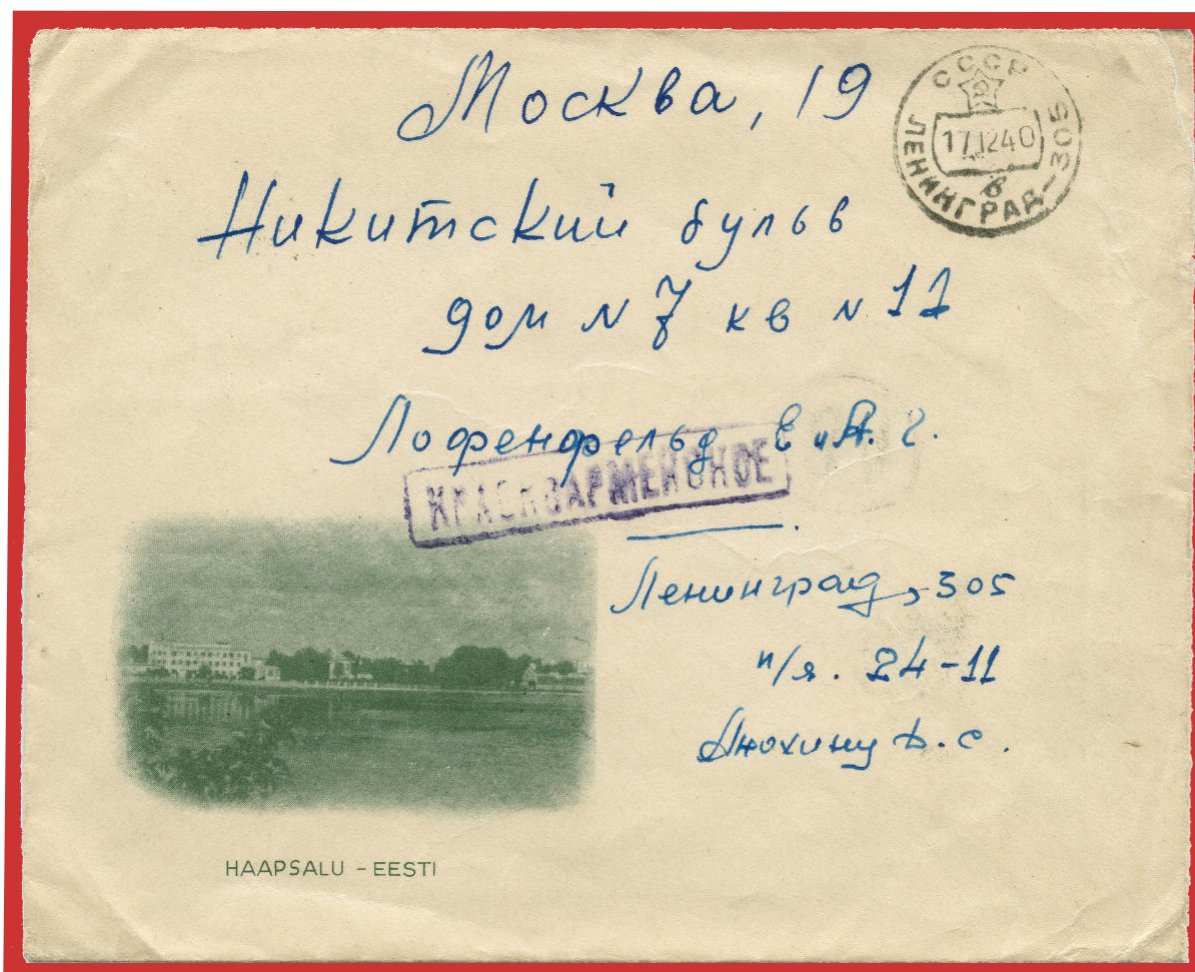 Москва, 19
СССР
ЛЕНИНГРАД-305
17.12.40
в
Никитский бульв
дом N 7 кв N 11
Лофенфельд Е и А. Г.
КРАСНОАРМЕЙСКОЕ
Ленинград, 305
п/я. 24-11
Анохину Б. С.
HAAPSALU - EESTI